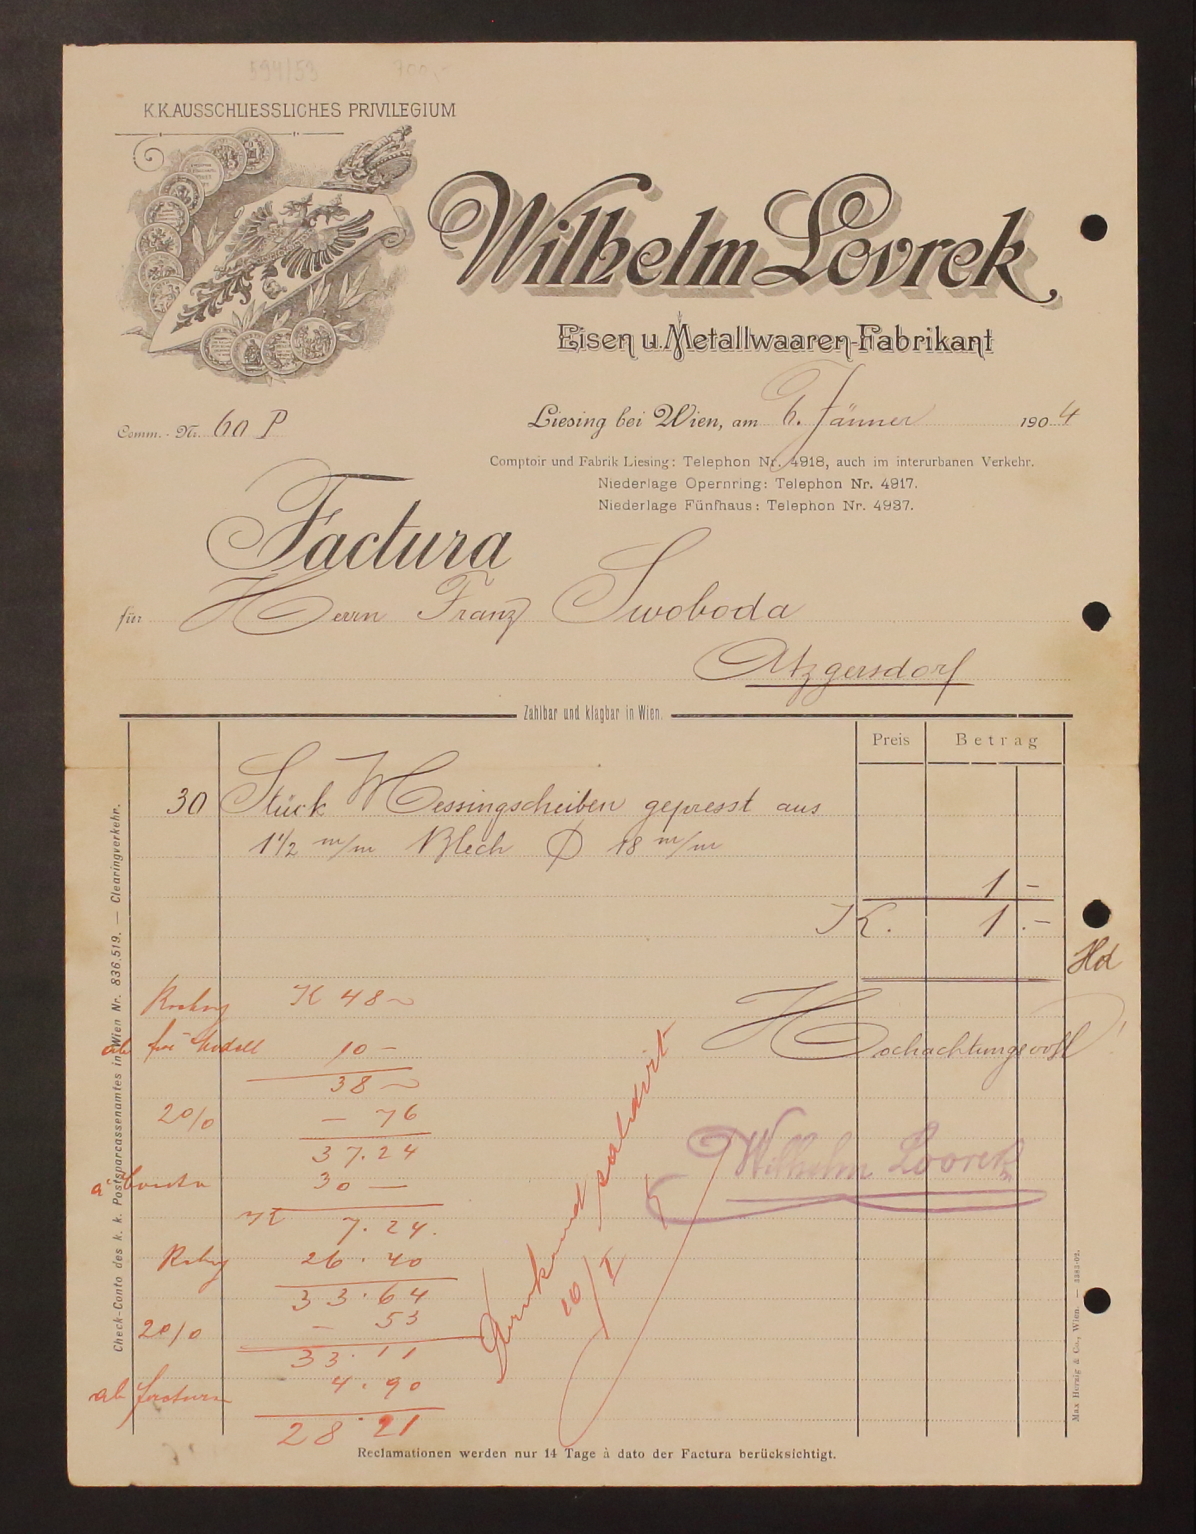 594/53
K.K. AUSSCHLIESSLICHES PRIVILEGIUM
Wilhelm Lovrek
Eisen u. Metallwaaren-Fabrikant
Comm. - Nr. 60 P
Liesing bei Wien, am 6. Jänner 1904
Comptoir und Fabrik Liesing: Telephon Nr. 4918, auch im interurbanen Verkehr.
Niederlage Opernring: Telephon Nr. 4917.
Niederlage Fünfhaus: Telephon Nr. 4937.
Factura
für: Herrn Franz Swoboda
Atzgersdorf
Zahlbar und klagbar in Wien.
Preis Betrag
30 Stück Messingscheiben gepresst aus
1 1/2 m/m Blech Ø 18 m/m
1 -
K. 1.-
Hd
K 48 ~
Hochachtungsvoll!
ab für Modell 10 -
38 ~
2 0/0 - 76
37.24
30 -
Wilhelm Lovrek
K 7.24.
26.40
33.64
2 0/0 - 53
33.11
ab factura 4.90
28.21
saldirt
10/I
Check-Conto des k. k. Postsparcassenamtes in Wien Nr. 836.519. — Clearingverkehr.
Max Herzig & Co., Wien. —
Reclamationen werden nur 14 Tage à dato der Factura berücksichtigt.